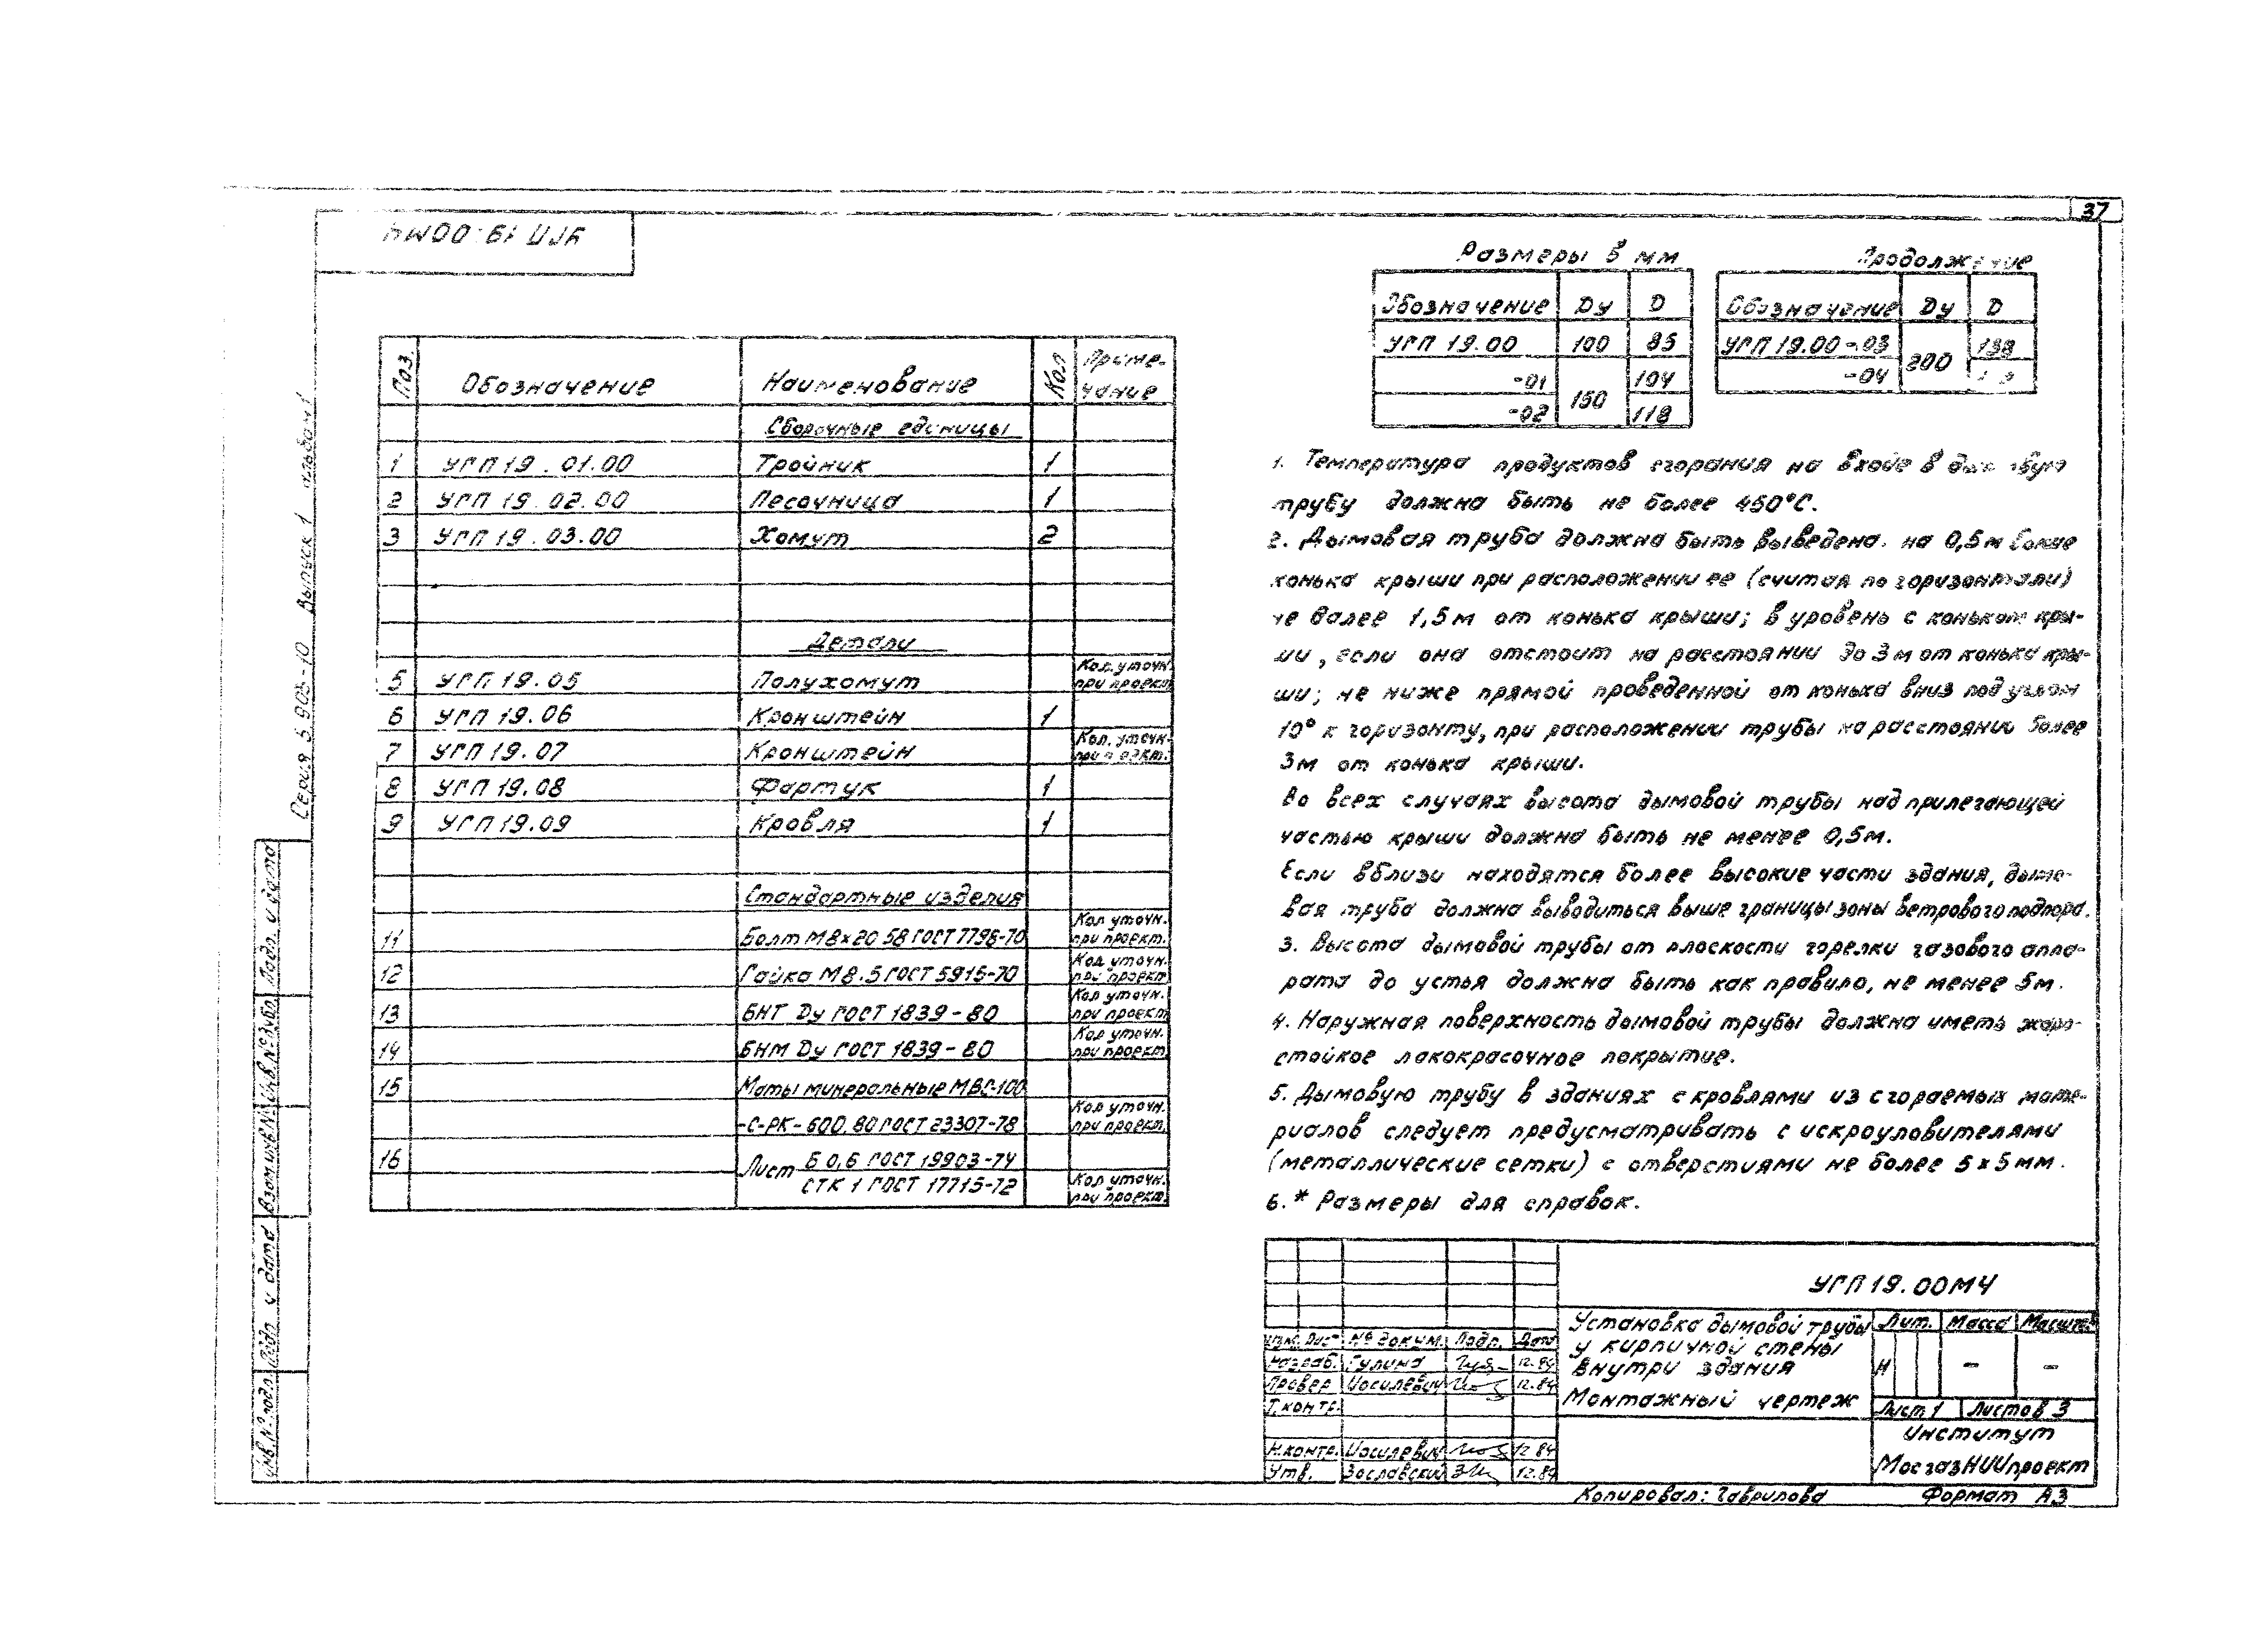 37
УГП 19.00МЧ
Серия 5.903-10 Выпуск 1 альбом 1
Поз. Обозначение Наименование Кол Приме-
чание
Сборочные единицы
1 УГП 19.01.00 Тройник 1
2 УГП 19.02.00 Песочница 1
3 УГП 19.03.00 Хомут 2
Детали
5 УГП 19.05 Полухомут Кол. уточн. при проект.
6 УГП 19.06 Кронштейн 1
7 УГП 19.07 Кронштейн Кол. уточн. при проект.
8 УГП 19.08 Фартук 1
9 УГП 19.09 Кровля 1
Стандартные изделия
11 Болт М8×20.58 ГОСТ 7798-70 Кол уточн. при проект.
12 Гайка М8.5 ГОСТ 5915-70 Кол уточн. при проект.
13 БНТ Dу ГОСТ 1839-80 Кол уточн. при проект
14 БНМ Dу ГОСТ 1839-80 Кол уточн. при проект.
15 Маты минеральные МВС-100
-С-РК-600.80 ГОСТ 23307-78 Кол уточн. при проект.
16 Лист Б 0,6 ГОСТ 19903-74
СТК 1 ГОСТ 17715-72 Кол уточн. при проект.
Размеры в мм
Обозначение Dу D
УГП 19.00 100 85
-01 150 104
-02 118
Продолжение
Обозначение Dу D
УГП 19.00-03 200 138
-04
1. Температура продуктов сгорания на входе в дымовую
трубу должна быть не более 450°С.
2. Дымовая труба должна быть выведена. на 0,5м выше
конька крыши при расположении ее (считая по горизонтали)
не далее 1,5м от конька крыши; в уровень с коньком кры-
ши, если она отстоит на расстоянии до 3м от конька кры-
ши; не ниже прямой проведенной от конька вниз под углом
10° к горизонту, при расположении трубы на расстоянии более
3м от конька крыши.
Во всех случаях высота дымовой трубы над прилегающей
частью крыши должна быть не менее 0,5м.
Если вблизи находятся более высокие части здания, дымо-
вая труба должна выводиться выше границы зоны ветрового подпора.
3. Высота дымовой трубы от плоскости горелки газового аппа-
рата до устья должна быть как правило, не менее 5м.
4. Наружная поверхность дымовой трубы должна иметь жаро-
стойкое лакокрасочное покрытие.
5. Дымовую трубу в зданиях с кровлями из сгораемых мате-
риалов следует предусматривать с искроуловителями
(металлические сетки) с отверстиями не более 5×5мм.
6.* Размеры для справок.
УГП 19.00МЧ
Установка дымовой трубы
у кирпичной стены
внутри здания
Монтажный чертеж
Лит. Масса Масштаб
И - -
Лист 1 Листов 3
Институт
МосгазНИИпроект
Изм. Лист № докум. Подп. Дата
Разраб. Гулина 12.84
Провер Иосилевич 12.84
Т.контр.
Н.контр. Иосилевич 12.84
Утв. Заславский 12.84
Копировал: Гаврилова Формат А3
Инв.№ подл. Подп. и дата Взам.инв.№ Инв.№ дубл. Подп. и дата